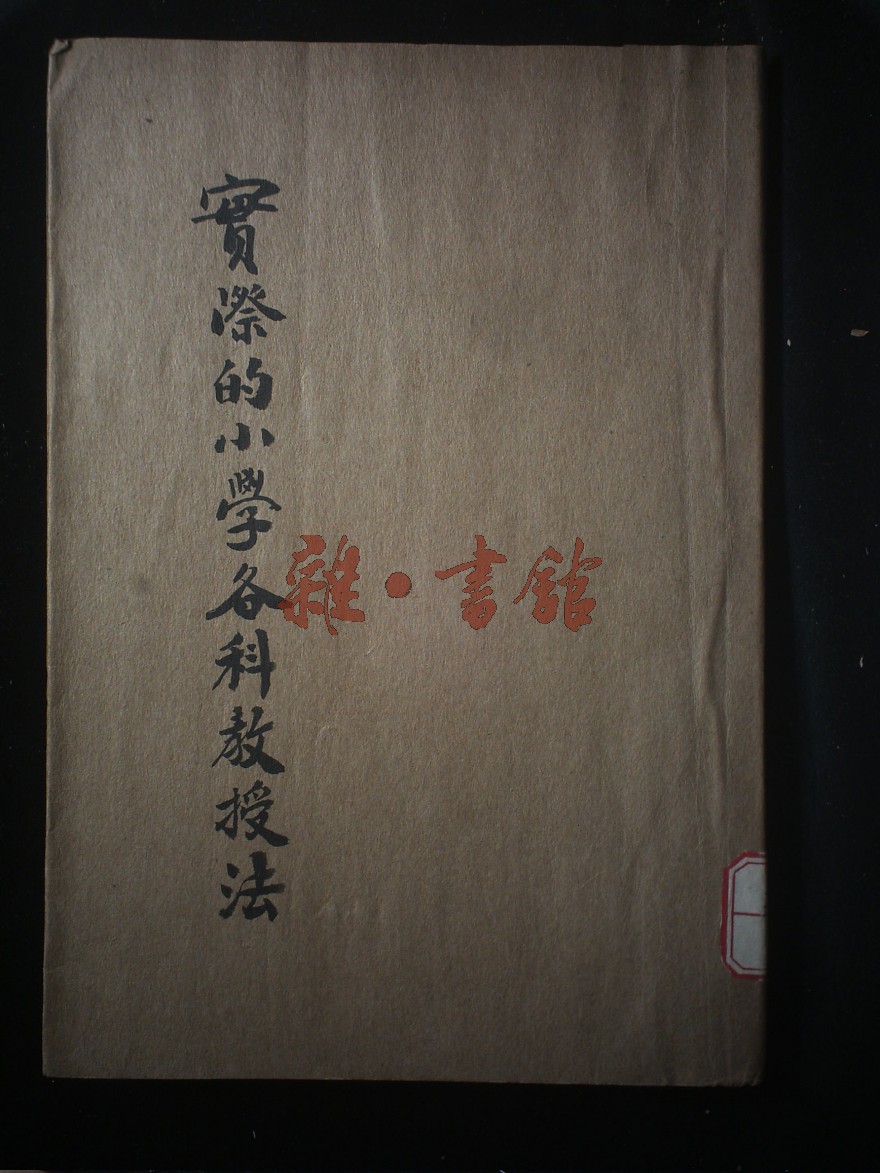 實際的小學各科教授法
雜·書館